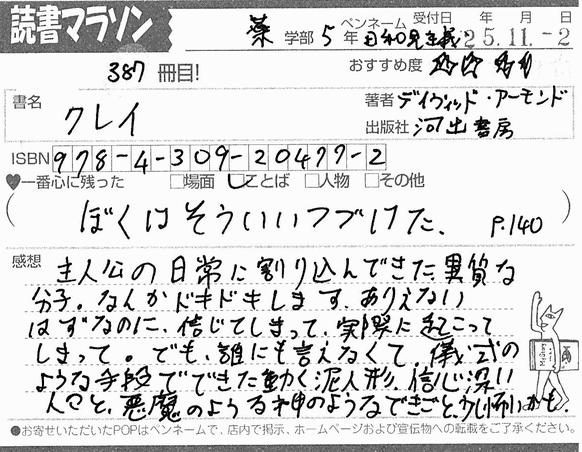 読書マラソン
薬 学部 5 年 ペンネーム 日和見主義 受付日 年 月 日 25.11.-2
387 冊目! おすすめ度
書名 クレイ
著者 デイヴィッド・アーモンド
出版社 河出書房
ISBN 978-4-309-20477-2
♥一番心に残った □場面 ☑ことば □人物 □その他
(ぼくはそういいつづけた。 P.140)
感想 主人公の日常に割り込んできた異質な
分子。なんかドキドキします。ありえない
はずなのに、信じてしまって、実際に起こって
しまって。でも、誰にも言えなくて。儀式の
ような手段でできた動く泥人形、信じ深い
人々と、悪魔のような神のようなできごと、少し怖いかも。
●お寄せいただいたPOPはペンネームで、店内で掲示、ホームページおよび宣伝物への転載をご了承ください。